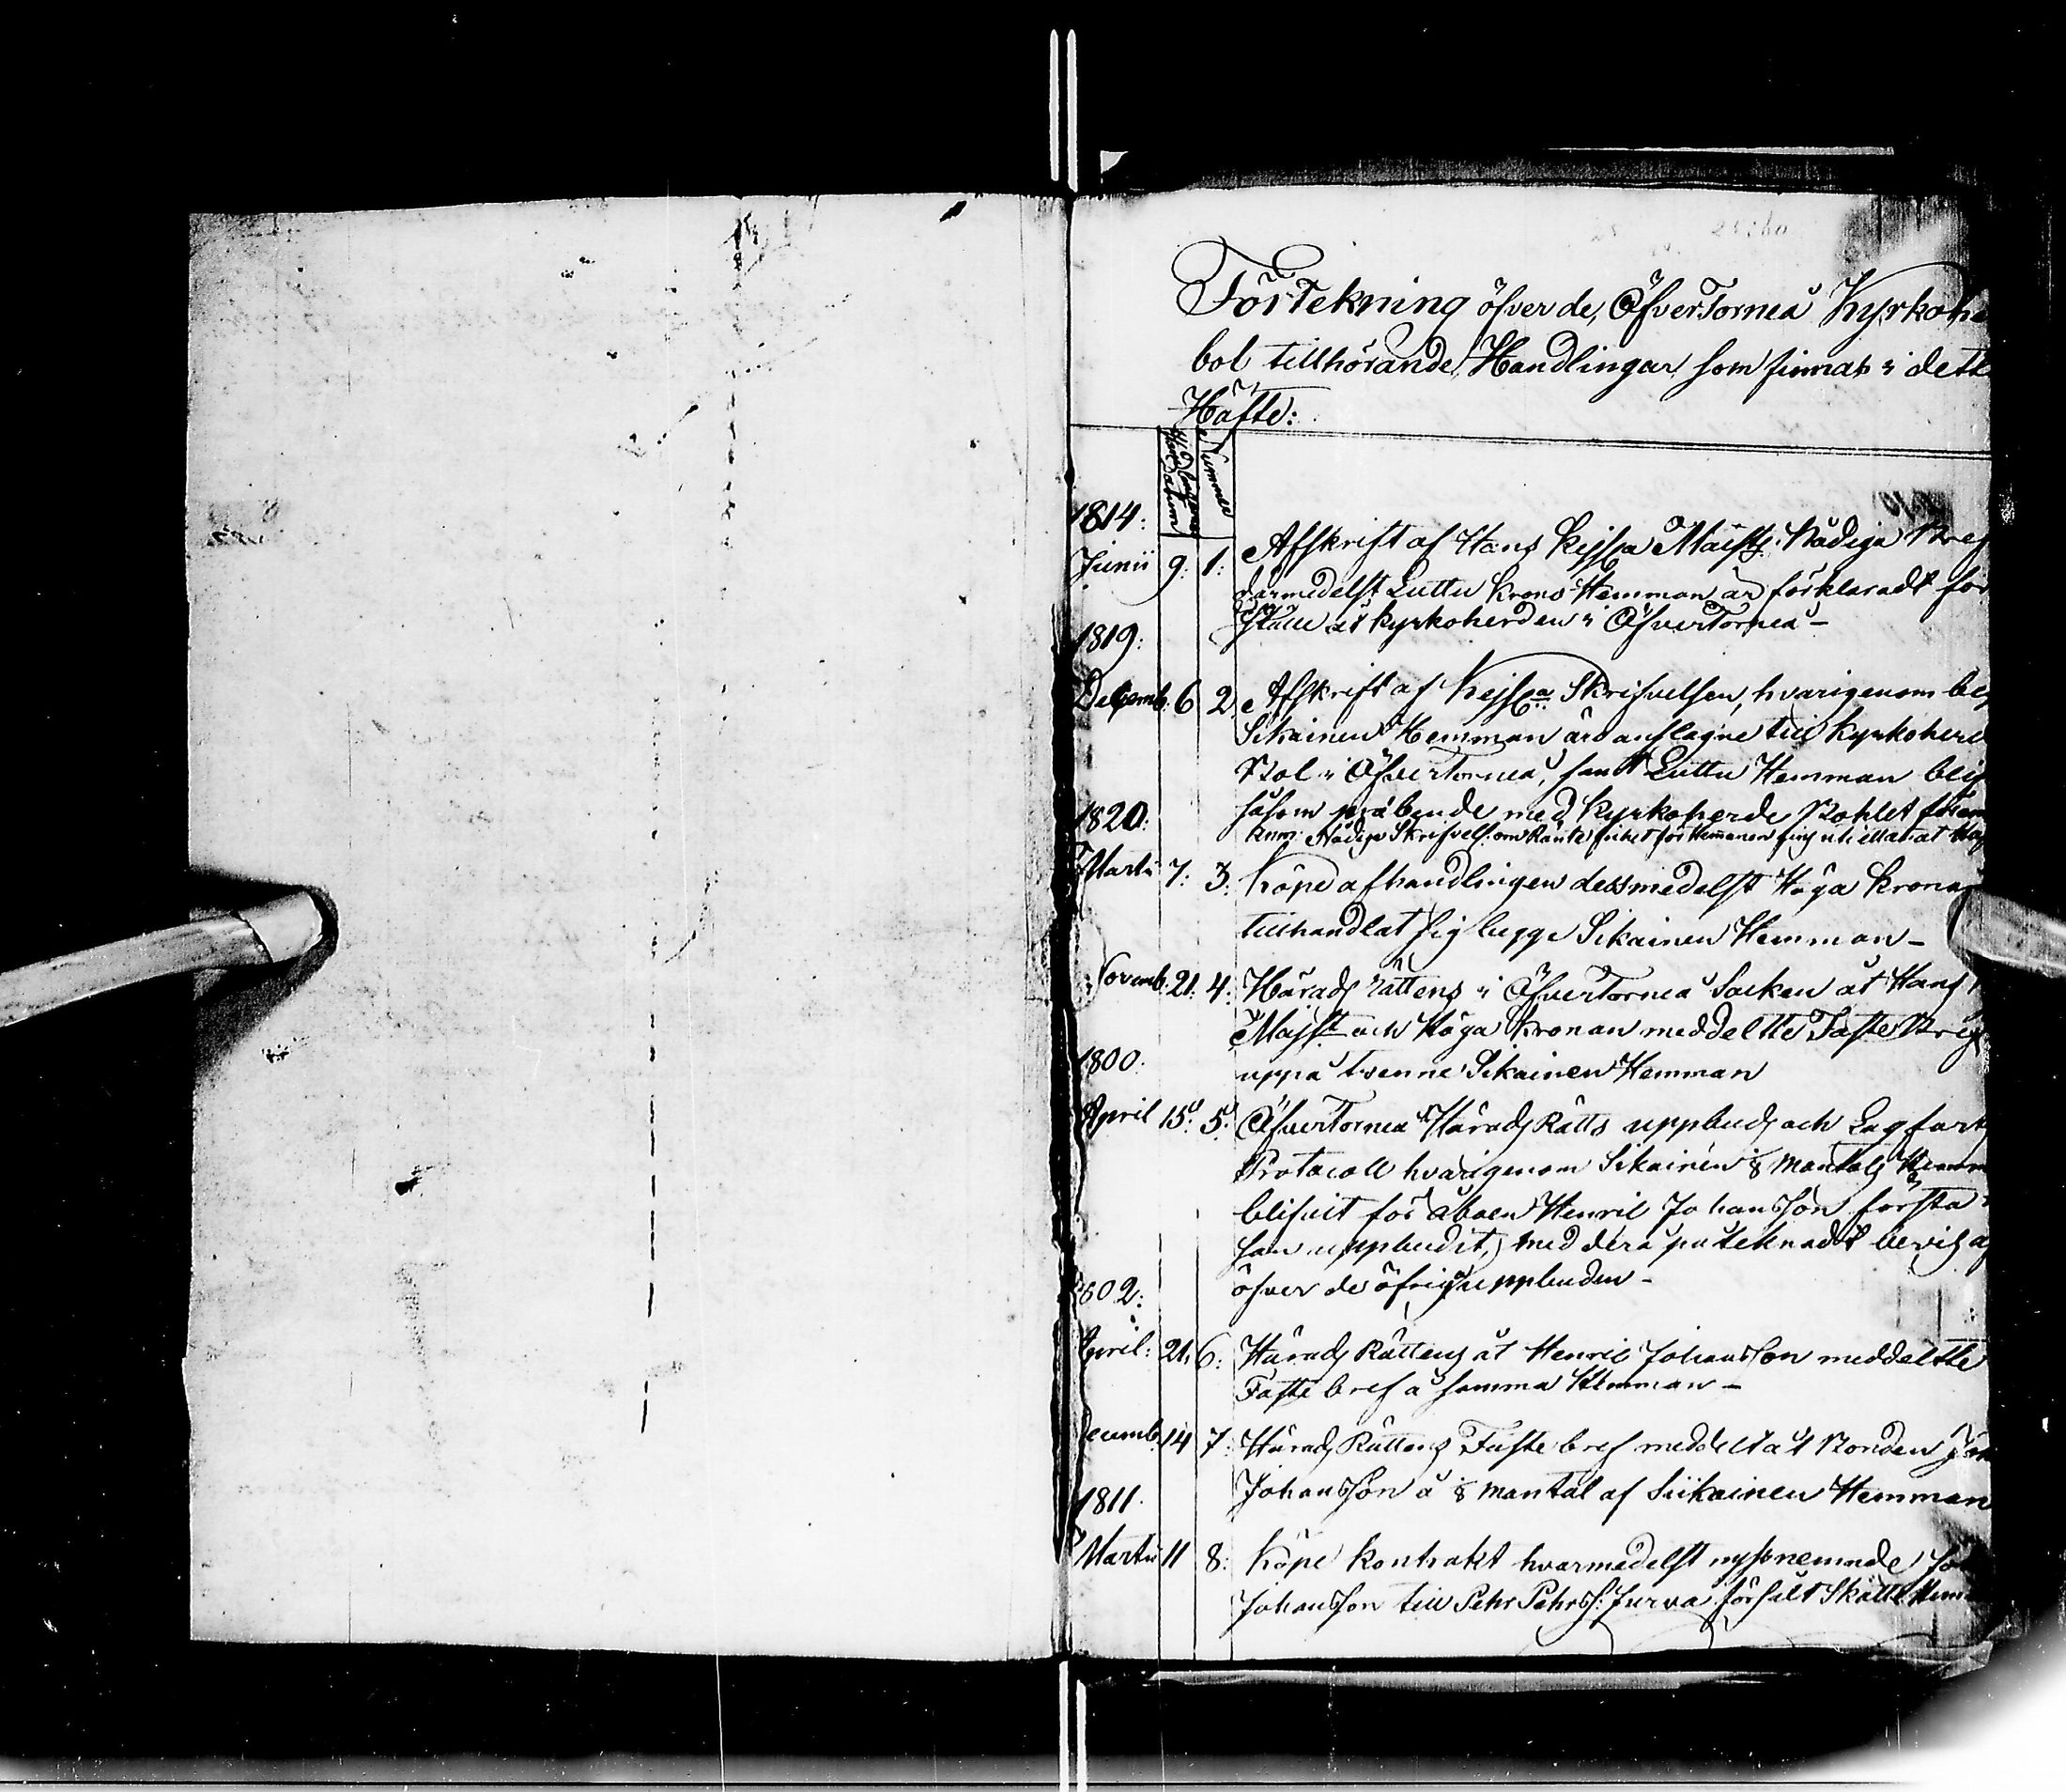 Förtekning öfver de, ÖfverTorneå Kyrkohe
bol tillhörande Handlingar som finnas i dett
Häfte:
Handlingarnes Datum Nummer
1814:
Junii 9. 1: Afskrift af Hans Kejsa Majsts Nådiga Bref
därmedelst Luttu Krono Hemman är förklaradt för
ställe åt Kyrkoherden i ÖfverTorneå -
1819:
Decemb. 6 2. Afskrift af Kejsa Skrifvelsen, hvarigenom beg
Sikainen Hemman äro anslagne till Kyrkoherd
Bol i ÖfverTorneå, samt Luttu Hemman blif
såsom præbende med Kyrkoherde Bohlet
1820:
Anm: Nådiga Skrifvelse om Ränte frihet för Hemmanen
Martii 7: 3: Köpe afhandlingen dessmedelst Höga Kronan
tillhandlat sig begge Sikainen Hemman -
Novemb. 21. 4: Härads Rättens i ÖfverTorneå Socken åt Hans
Majst och Höga Kronan meddelte Faste Bref
1800:
uppå tvenne Sikainen Hemman
April 15. 5: ÖfverTorneå Härads Rätts uppbuds och Lagfarts
Protocoll hvarigenom Sikainen 1/8 mantals Hemm
blifvit för åboen Henric Johansson första
gången uppbudit, med derå påteknadt bevis af
802: öfver de öfriga uppbuden -
April: 21. 6: Härads Rättens åt Henric Johansson meddelte
Faste bref å samma Hemman -
Decemb. 14 7: Härads Rättens Faste bref meddelt åt Bonden Joh
1811. Johansson å 1/8 mantal af Siikainen Hemman
Martii 11 8: Köpe Kontrakt hvarmedelst nyssnemnde Joh
Johansson till Pehr Pehrss: Jurva försålt Skatte Hem